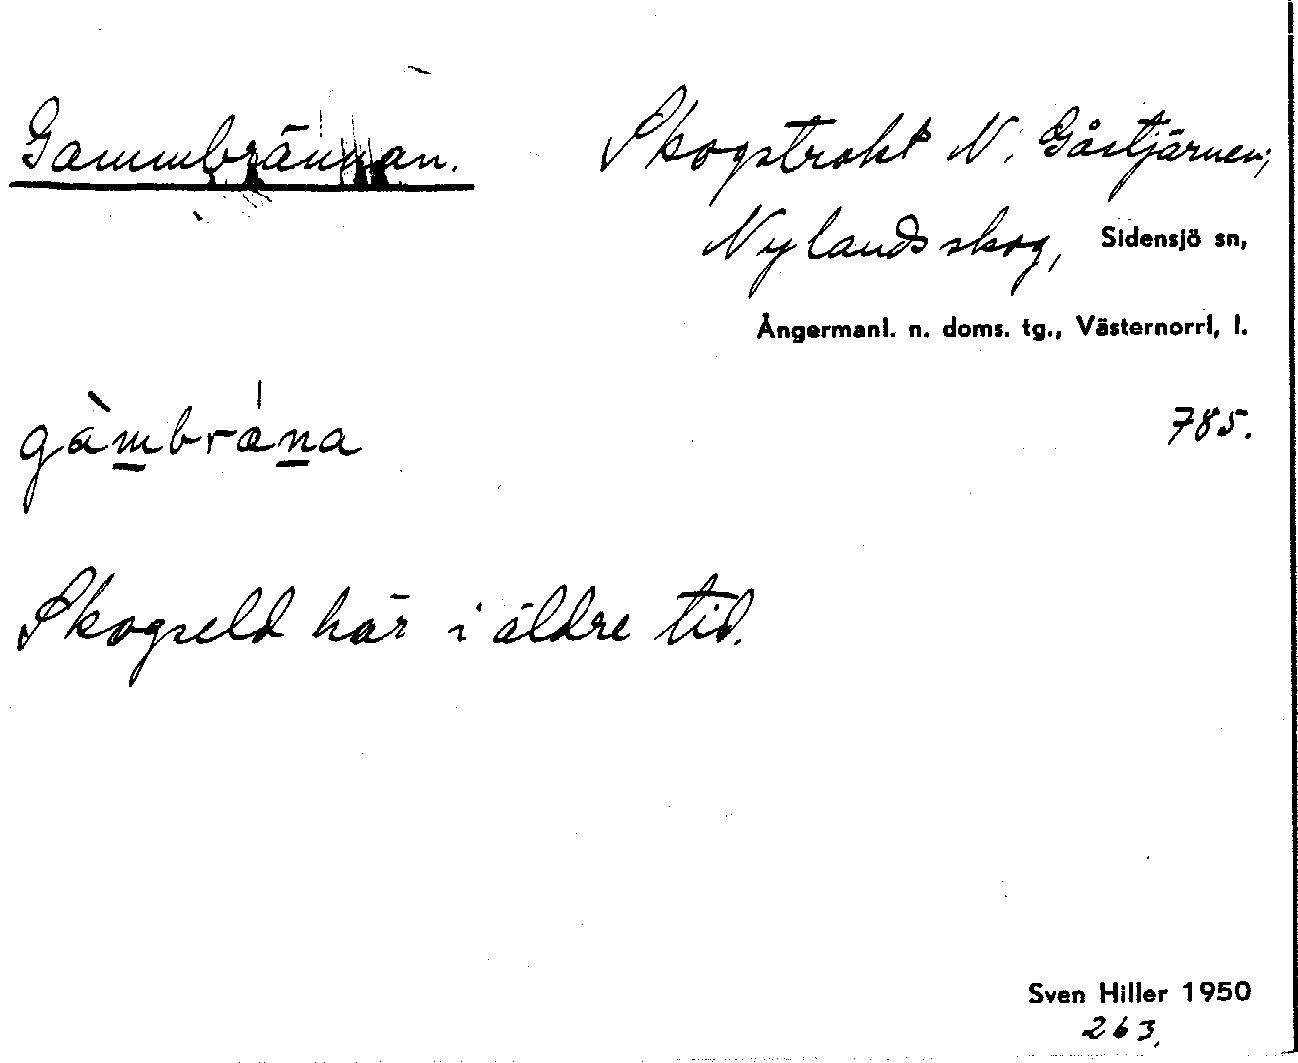 Gammbrännan.
Skogstrakt N. Gåstjärnen;
Nylandsskog, Sidensjö sn,
Ångermanl. n. doms. tg., Västernorrl, l.
gàmbrána
785.
Skogseld här i äldre tid.
Sven Hiller 1950
263.